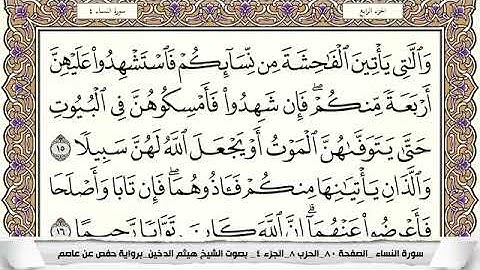 سورة النساء ٤
الجزء الرابع
وَٱلَّٰتِي يَأۡتِينَ ٱلۡفَٰحِشَةَ مِن نِّسَآئِكُمۡ فَٱسۡتَشۡهِدُواْ عَلَيۡهِنَّ
أَرۡبَعَةٗ مِّنكُمۡۖ فَإِن شَهِدُواْ فَأَمۡسِكُوهُنَّ فِي ٱلۡبُيُوتِ
حَتَّىٰ يَتَوَفَّىٰهُنَّ ٱلۡمَوۡتُ أَوۡ يَجۡعَلَ ٱللَّهُ لَهُنَّ سَبِيلٗا ١٥
وَٱلَّذَانِ يَأۡتِيَٰنِهَا مِنكُمۡ فَـَٔاذُوهُمَاۖ فَإِن تَابَا وَأَصۡلَحَا
فَأَعۡرِضُواْ عَنۡهُمَآۗ إِنَّ ٱللَّهَ كَانَ تَوَّابٗا رَّحِيمًا ١٦
سورة النساء _الصفحة ٨٠_الحزب ٨_الجزء ٤_ بصوت الشيخ هيثم الدخين_برواية حفص عن عاصم